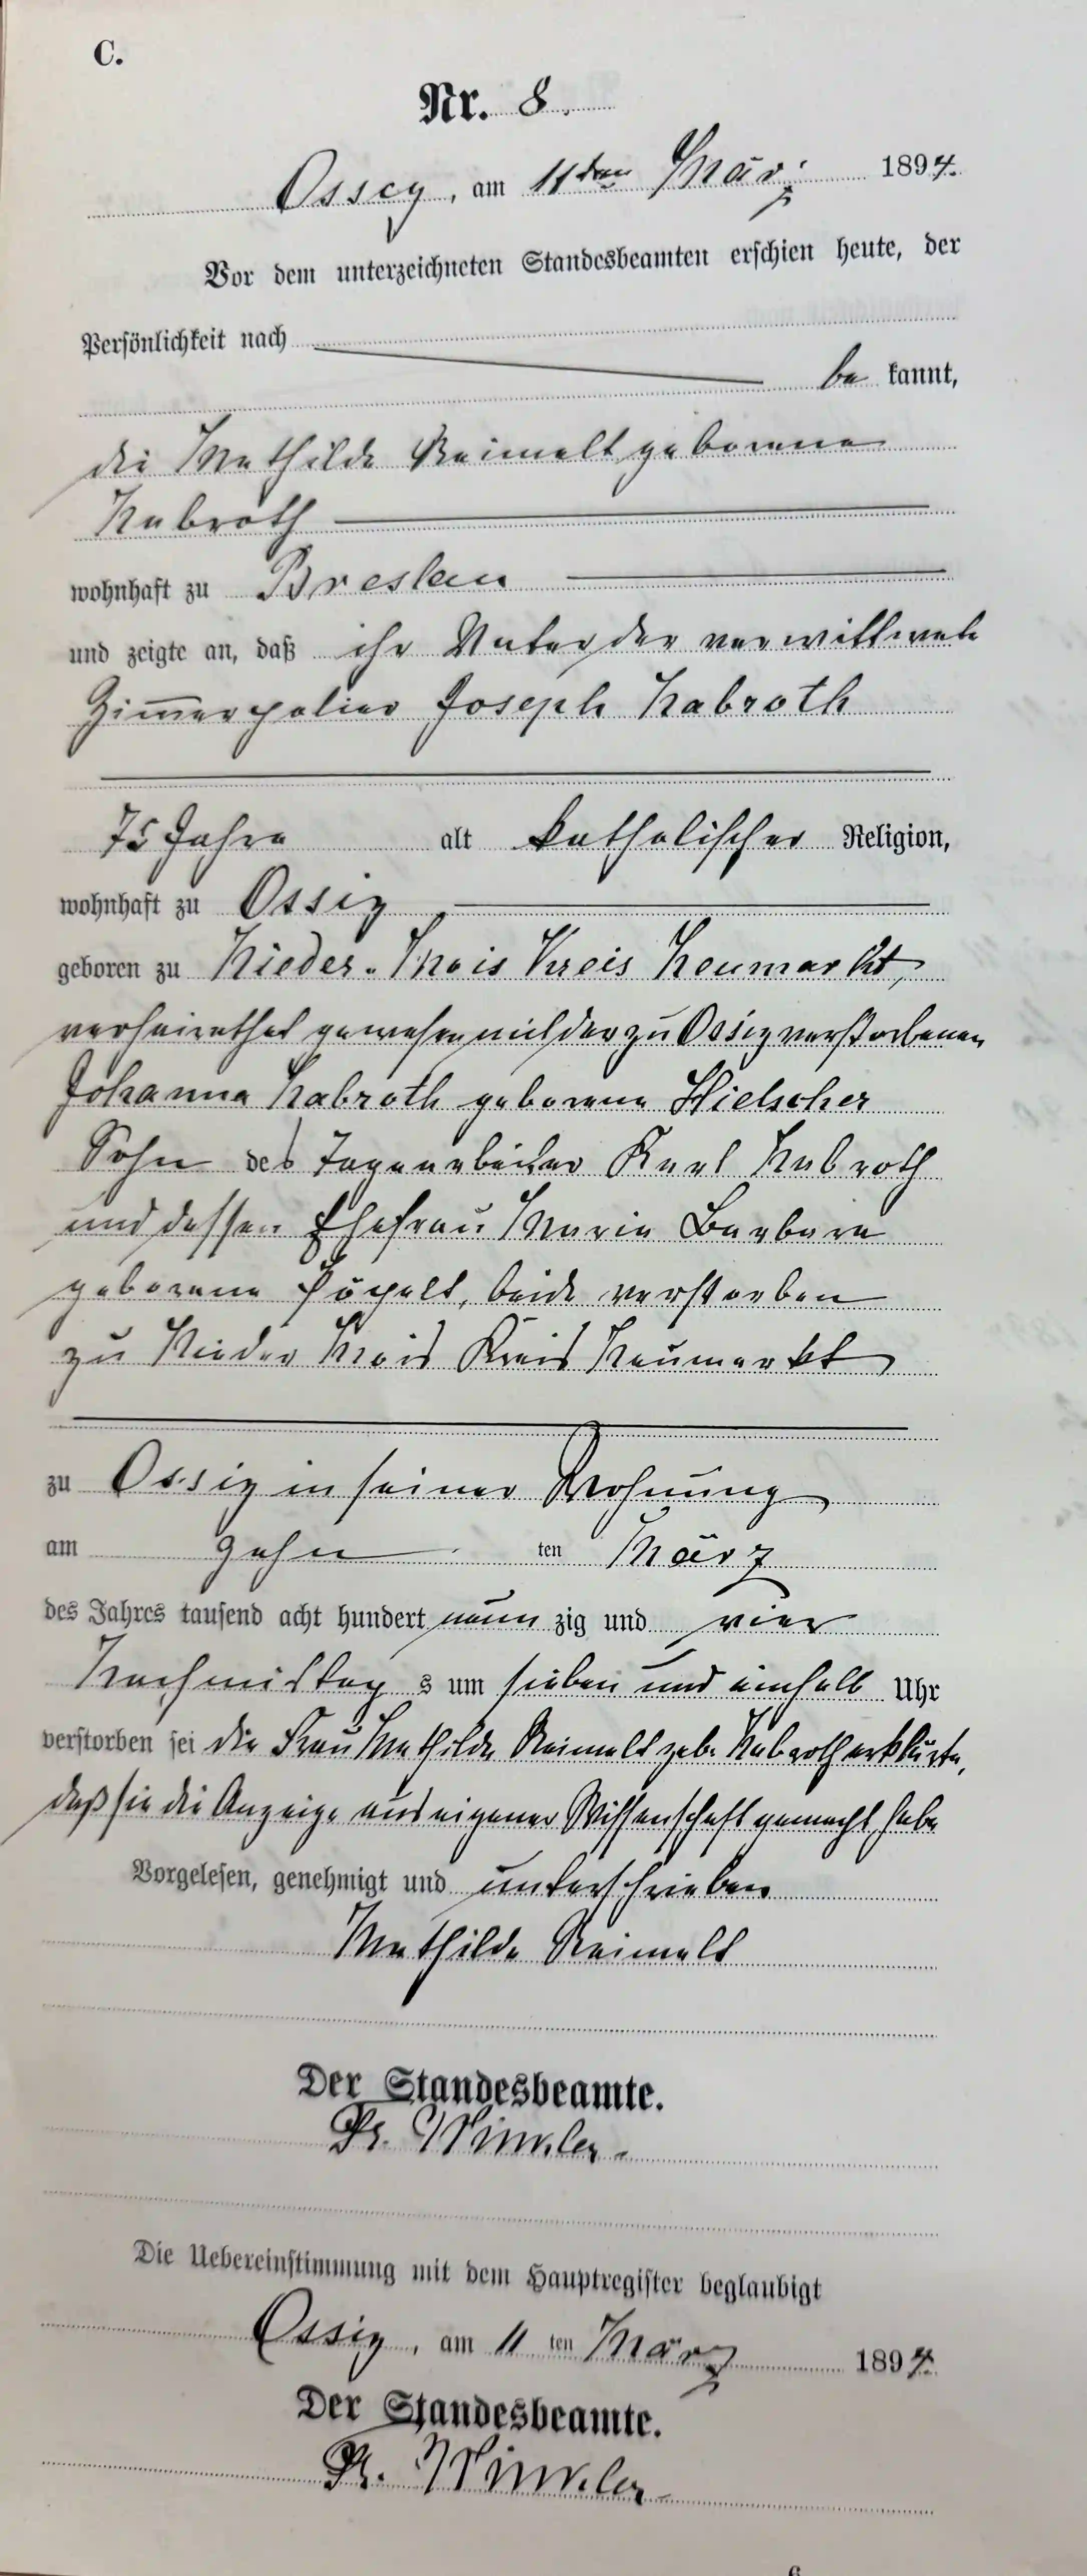 C.
Nr. 8.
Ossig, am 11ten März 1894.
Vor dem unterzeichneten Standesbeamten erschien heute, der
Persönlichkeit nach
be kannt,
die Mathilde Reimelt geborene
Kabroth
wohnhaft zu Breslau
und zeigte an, daß ihr Vater der verwittwete
Zimmerpolier Joseph Kabroth
75 Jahre alt katholischer Religion,
wohnhaft zu Ossig
geboren zu Nieder-Mois Kreis Neumarkt,
verheirathet gewesen mit der zu Ossig verstorbenen
Johanna Kabroth geborene Hielscher
Sohn des Tagearbeiter Karl Kabroth
und dessen Ehefrau Maria Barbara
geborene Pöpelt, beide verstorben
zu Nieder Mois Kreis Neumarkt
zu Ossig in seiner Wohnung
am zehn ten März
des Jahres tausend acht hundert neun zig und vier
Nachmittag s um sieben und einhalb Uhr
verstorben sei die Frau Mathilde Reimelt geb. Kabroth erklärte,
daß sie die Anzeige aus eigener Wissenschaft gemacht habe
Vorgelesen, genehmigt und unterschrieben
Mathilde Reimelt
Der Standesbeamte.
Fr. Winkler.
Die Uebereinstimmung mit dem Hauptregister beglaubigt
Ossig, am 11 ten März 1894.
Der Standesbeamte.
Fr. Winkler
6